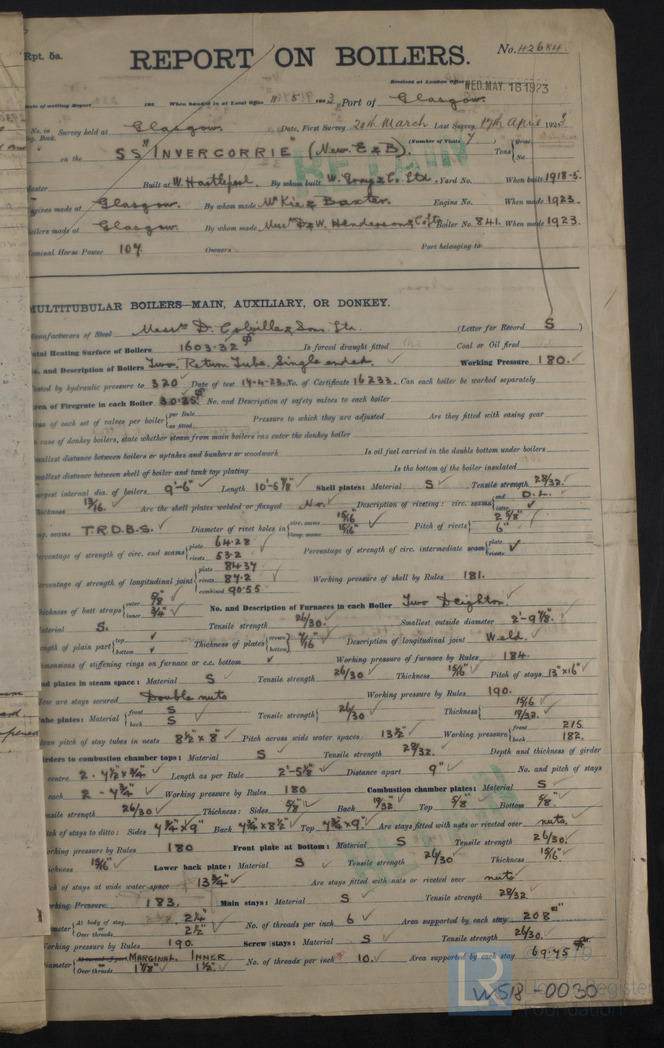 Rpt. 5a.
REPORT ON BOILERS.
No. 42684.
Received at London Office WED. MAY. 16 1923
Date of writing Report 192 When handed in at Local Office 11. 5. 1923. Port of Glasgow.
No. in Survey held at Glasgow. Date, First Survey 20th March Last Survey 17th April 1923
Reg. Book.
(Number of Visits 7) Gross
on the SS "INVERCORRIE (New E & B). Tons Net
Master Built at W. Hartlepool. By whom built W. Gray & Co. Ltd. Yard No. When built 1918-5.
Engines made at Glasgow. By whom made McKie & Baxter. Engine No. When made 1923.
Boilers made at Glasgow. By whom made Messrs D. & W. Henderson & Co. Ltd Boiler No. 841. When made 1923.
Nominal Horse Power 107. Owners Port belonging to
MULTITUBULAR BOILERS—MAIN, AUXILIARY, OR DONKEY.
Manufacturers of Steel Messrs D. Colville & Sons Ltd. (Letter for Record S)
Total Heating Surface of Boilers 1603.32 Is forced draught fitted Coal or Oil fired
No. and Description of Boilers Two, Return Tube, Single ended. Working Pressure 180.
Tested by hydraulic pressure to 320 Date of test 14-4-23. No. of Certificate 16233. Can each boiler be worked separately
Area of Firegrate in each Boiler 30.25 No. and Description of safety valves to each boiler
Area of each set of valves per boiler {per Rule as fitted Pressure to which they are adjusted Are they fitted with easing gear
In case of donkey boilers, state whether steam from main boilers can enter the donkey boiler
Smallest distance between boilers or uptakes and bunkers or woodwork Is oil fuel carried in the double bottom under boilers
Smallest distance between shell of boiler and tank top plating Is the bottom of the boiler insulated
Largest internal dia. of boilers 9'-6" Length 10'-5 7/8" Shell plates: Material S Tensile strength 28/32.
Thickness 13/16. Are the shell plates welded or flanged No. Description of riveting: circ. seams {end D.L. inter. ✓
long. seams T.R.D.B.S. Diameter of rivet holes in {circ. seams 15/16" long. seams 15/16" Pitch of rivets {2 5/8" 6"
Percentage of strength of circ. end seams {plate 64.28 rivets 53.2 Percentage of strength of circ. intermediate seam {plate rivets ✓
Percentage of strength of longitudinal joint {plate 84.37 rivets 87.2 combined 90.55 Working pressure of shell by Rules 181.
Thickness of butt straps {outer 5/8" inner 3/4" No. and Description of Furnaces in each Boiler Two Deighton.
Material S. Tensile strength 26/30. Smallest outside diameter 2'-9 7/8".
Length of plain part {top ✓ bottom ✓ Thickness of plates {crown bottom 7/16" Description of longitudinal joint Weld.
Dimensions of stiffening rings on furnace or c.c. bottom ✓ Working pressure of furnace by Rules 184.
End plates in steam space: Material S Tensile strength 26/30 Thickness 15/16" Pitch of stays 13" x 16"
How are stays secured Double nuts Working pressure by Rules 190.
Tube plates: Material {front S back S Tensile strength {26/30 Thickness {15/16 19/32.
Mean pitch of stay tubes in nests 8 1/2" x 8" Pitch across wide water spaces. 13 1/2" Working pressure {front 215. back 182.
Girders to combustion chamber tops: Material S Tensile strength 28/32. Depth and thickness of girder
at centre 2 - 7 1/2" x 3/4" Length as per Rule 2'-5 5/8" Distance apart 9" No. and pitch of stays
in each 2 - 7 3/4" Working pressure by Rules 180 Combustion chamber plates: Material S
Tensile strength 26/30 Thickness: Sides 5/8" Back 19/32 Top 5/8" Bottom 5/8"
Pitch of stays to ditto: Sides 7 3/4" x 9" Back 7 3/4" x 8 1/2" Top 7 3/4" x 9". Are stays fitted with nuts or riveted over nuts.
Working pressure by Rules 180 Front plate at bottom: Material S Tensile strength 26/30.
Thickness 15/16" Lower back plate: Material S Tensile strength 26/30 Thickness 15/16"
Pitch of stays at wide water space 13 3/4" Are stays fitted with nuts or riveted over nuts
Working Pressure 183. Main stays: Material S Tensile strength 28/32
Diameter {At body of stay, 2 1/4" or Over threads 2 1/2" No. of threads per inch 6 Area supported by each stay 208 "
Working pressure by Rules 190. Screw stays: Material S Tensile strength 26/30.
Diameter {At turned off part, or Over threads MARGINAL 1 5/8" INNER 1 1/2" No. of threads per inch 10. Area supported by each stay 69.75
W518-0030
© 2019
Lloyd's Register
Foundation